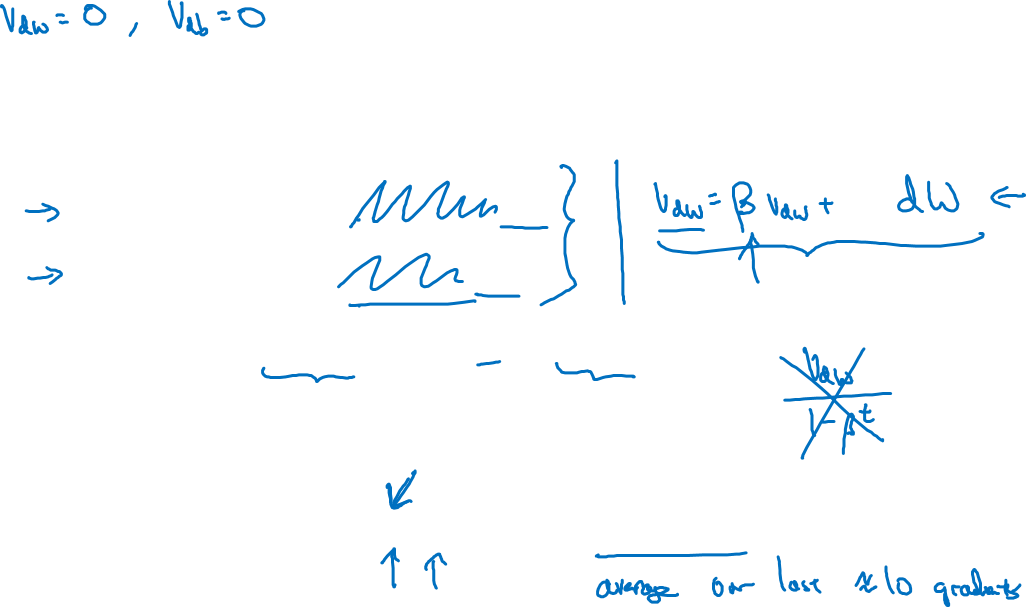 V_dw = 0 , V_db = 0
V_dw = β V_dw + dW ←
V_dw
1 - β^t
average over last ≈ 10 gradients